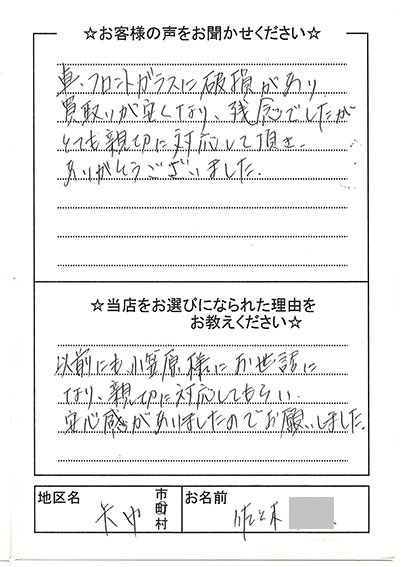 ☆お客様の声をお聞かせください☆
車、フロントガラスに破損があり
買取りが安くなり、残念でしたが
とても親切に対応して頂き、
ありがとうございました。
☆当店をお選びになられた理由を
お教えください☆
以前にも、小笠原様にお世話に
なり、親切に対応してもらい、
安心感がありましたのでお願いしました。
地区名 市町村 お名前 佐々木